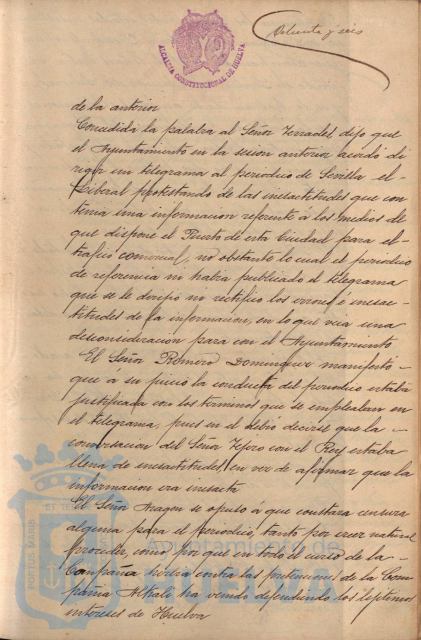 Ochenta y seis
ALCALDIA CONSTITUCIONAL DE HUELVA
de la anterior
Concedida la palabra al Señor Terradel, dijo que
el Ayuntamiento en la sesion anterior acordó di
rigir un telegrama al periodico de Sevilla el
Liberal protestando de las inexactitudes que con
tenia una informacion referente á los medios de
que dispone el Puerto de esta Ciudad para el
trafico comercial, no obstante lo cual el periodico
de referencia ni habia publicado el telegrama
que se le dirigió ni rectificó los errores é inexac
titudes de la informacion, en lo que veia una
desconsideracion para con el Ayuntamiento
El Señor Romero Dominguez manifestó
que á su juicio la conducta del periodico estaba
justificada con los terminos que se empleaban en
el telegrama, pues en el debió decirse que la
conversacion del Señor Tejero con el Rey estaba
llena de inexactitudes, en vez de afirmar que la
informacion era inexacta
El Señor Aragon se opuso á que constara censura
alguna para el periodico, tanto por creer natural
proceder, como por que en todo el curso de la
Campaña contra las pretensiones de la Com
pañia Alkali ha venido defendiendo los legitimos
intereses de Huelva
PORTUS MARIS